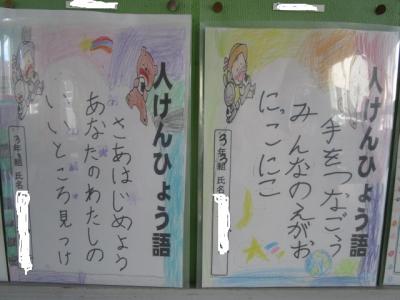 人けんひょう語
さあはじめよう
あなたのわたしの
いいところ見つけ
3年組 氏名
人けんひょう語
手をつなごう
みんなのえがお
にっこにこ
3年3組 氏名